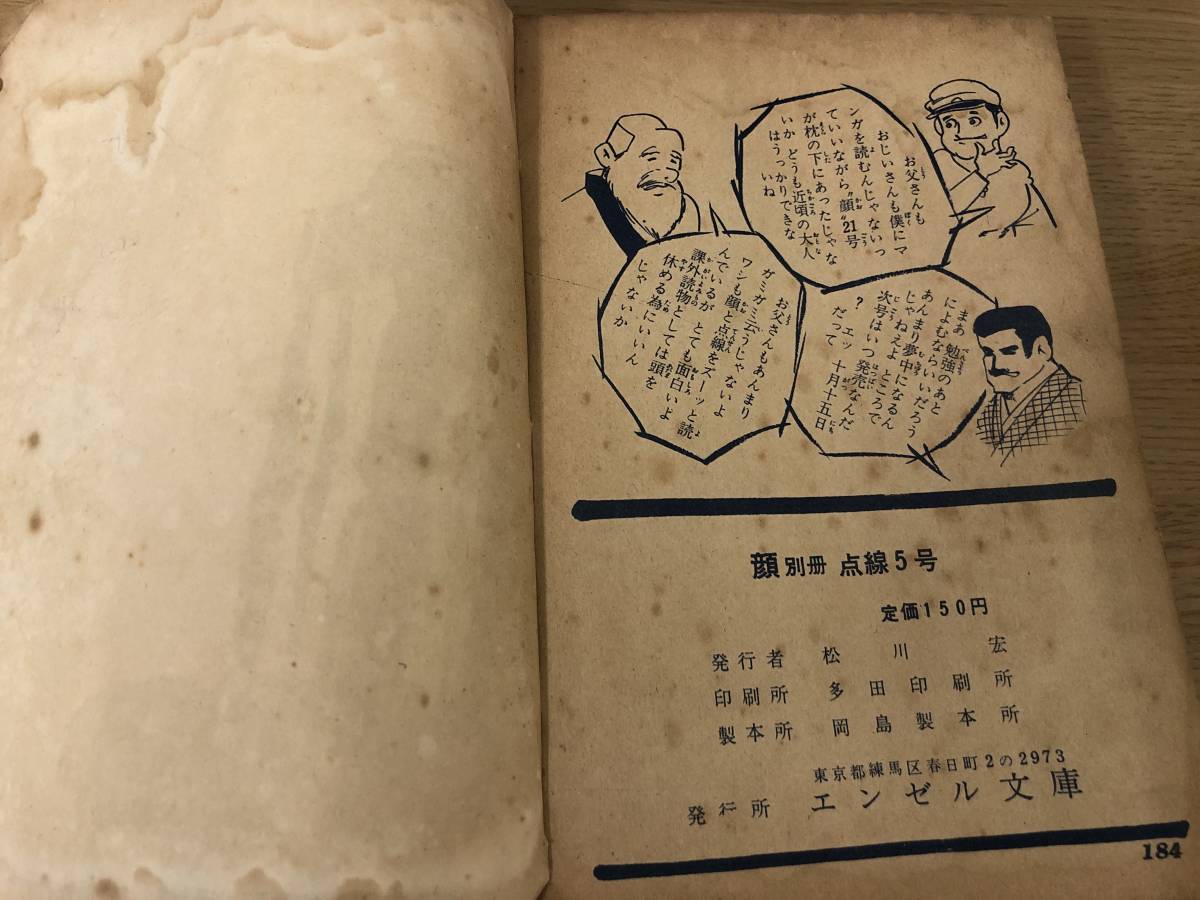 お父さんも
おじいさんも僕にマ
ンガを読むんじゃないっ
ていいながら〝顔〟21号
が枕の下にあったじゃな
いか どうも近頃の大人
はうっかりできな
いね
お父さんもあんまり
ガミガミ云うじゃないよ
ワシも顔と点線をズーッと読
んでいるが とても面白いよ
課外読物としては頭を
休める為にいいん
じゃないか
まあ 勉強のあと
によむならいいだろう
あんまり夢中になるん
じゃねえよ ところで
次号はいつ発売なんだ
? エッ 十月十五日
だって
顔別冊 点線5号
定価150円
発行者 松川宏
印刷所 多田印刷所
製本所 岡島製本所
東京都練馬区春日町2の2973
発行所 エンゼル文庫
184